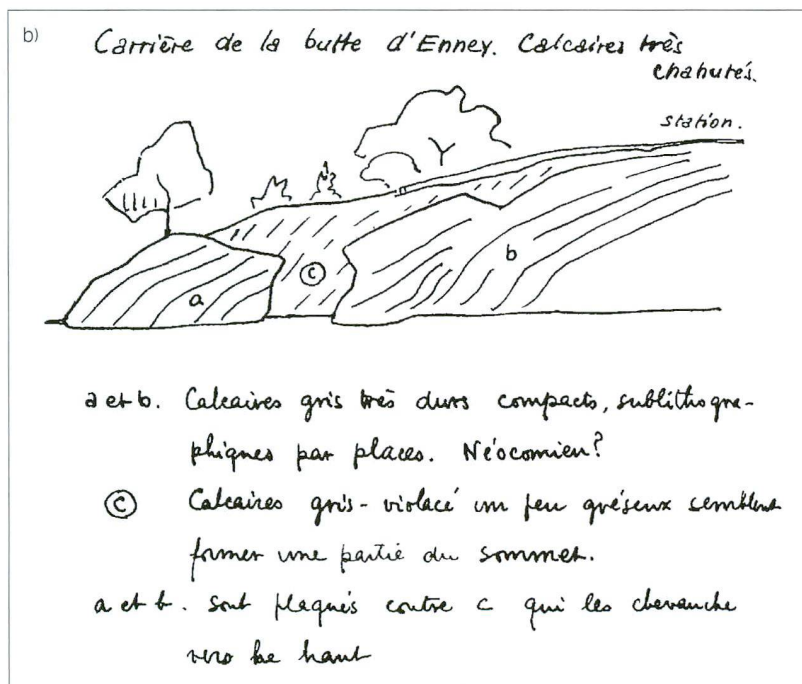 b)
Carrière de la butte d'Enney. Calcaires très
chahutés.
station.
a
c
b
a et b. Calcaires gris très durs compacts, sublithogra-
phiques par places. Néocomien?
c Calcaires gris-violacé un peu gréseux semblent
former une partie du sommet.
a et b. sont plaqués contre c qui les chevauche
vers le haut